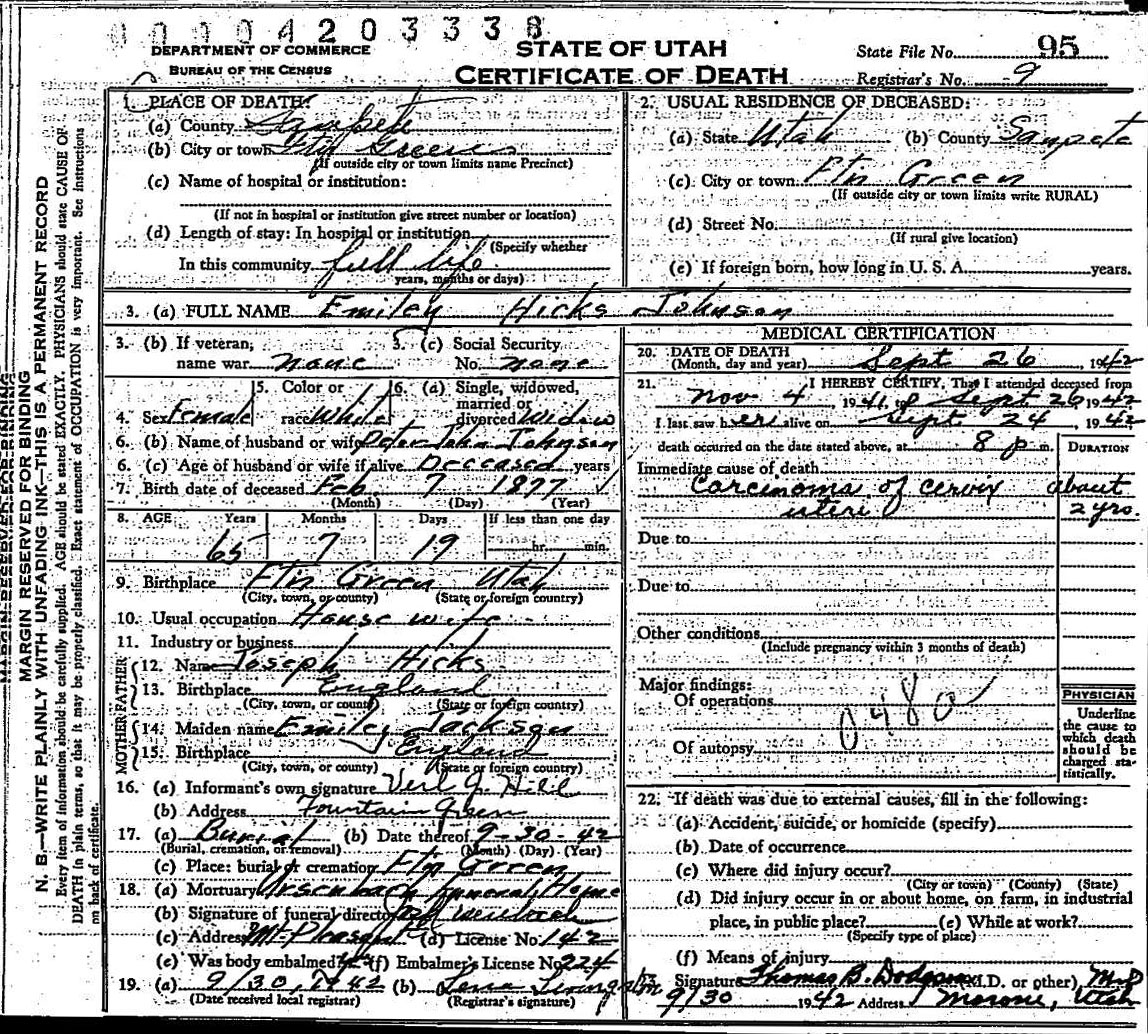 00004203338
DEPARTMENT OF COMMERCE
BUREAU OF THE CENSUS
STATE OF UTAH
CERTIFICATE OF DEATH
State File No. 95
Registrar's No. 9
MARGIN RESERVED FOR BINDING
N. B.—WRITE PLAINLY WITH UNFADING INK—THIS IS A PERMANENT RECORD
Every item of information should be carefully supplied. AGE should be stated EXACTLY. PHYSICIANS should state CAUSE OF
DEATH in plain terms, so that it may be properly classified. Exact statement of OCCUPATION is very important. See instructions
on back of certificate.
1. PLACE OF DEATH:
(a) County Sanpete
(b) City or town Ftn Green
(If outside city or town limits name Precinct)
(c) Name of hospital or institution:
(If not in hospital or institution give street number or location)
(d) Length of stay: In hospital or institution
(Specify whether
In this community full life
years, months or days)
2. USUAL RESIDENCE OF DECEASED:
(a) State Utah (b) County Sanpete
(c) City or town Ftn Green
(If outside city or town limits write RURAL)
(d) Street No.
(If rural give location)
(e) If foreign born, how long in U. S. A. years.
3. (a) FULL NAME Emiley Hicks Johnson
3. (b) If veteran, name war none
3. (c) Social Security No. none
4. Sex Female
5. Color or race White
6. (a) Single, widowed, married or divorced Widow
6. (b) Name of husband or wife Peter John Johnson
6. (c) Age of husband or wife if alive Deceased years
7. Birth date of deceased Feb 7 1877
(Month) (Day) (Year)
8. AGE Years Months Days If less than one day
65 7 19 hr. min.
9. Birthplace Ftn Green Utah
(City, town, or county) (State or foreign country)
10. Usual occupation House wife
11. Industry or business
FATHER
12. Name Joseph Hicks
13. Birthplace England
(City, town, or county) (State or foreign country)
MOTHER
14. Maiden name Emiley Jackson
15. Birthplace England
(City, town, or county) (State or foreign country)
16. (a) Informant's own signature Verl J. Hill
(b) Address Fountain Green
17. (a) Burial (b) Date thereof 9-30-42
(Burial, cremation, or removal) (Month) (Day) (Year)
(c) Place: burial or cremation Ftn Green
18. (a) Mortuary Ursenbach Funeral Home
(b) Signature of funeral director
(c) Address Mt Pleasant (d) License No. 142
(e) Was body embalmed? yes (f) Embalmer's License No. 224
19. (a) 9/30, 1942 (b) Lena
(Date received local registrar) (Registrar's signature)
MEDICAL CERTIFICATION
20. DATE OF DEATH
(Month, day and year) Sept 26 1942
21. I HEREBY CERTIFY, That I attended deceased from
Nov 4 1941 to Sept 26, 1942
I last saw her alive on Sept 24 1942
death occurred on the date stated above, at 8 p m.
DURATION
Immediate cause of death
Carcinoma of cervix about
uteri 2 yrs.
Due to
Due to
Other conditions
(Include pregnancy within 3 months of death)
Major findings:
Of operations
0480
Of autopsy
PHYSICIAN
Underline
the cause to
which death
should be
charged sta-
tistically.
22. If death was due to external causes, fill in the following:
(a) Accident, suicide, or homicide (specify)
(b) Date of occurrence
(c) Where did injury occur?
(City or town) (County) (State)
(d) Did injury occur in or about home, on farm, in industrial
place, in public place? (e) While at work?
(Specify type of place)
(f) Means of injury
Signature Thomas B. Dodgson (M.D. or other) M.D
9/30 1942 Address Moroni, Utah